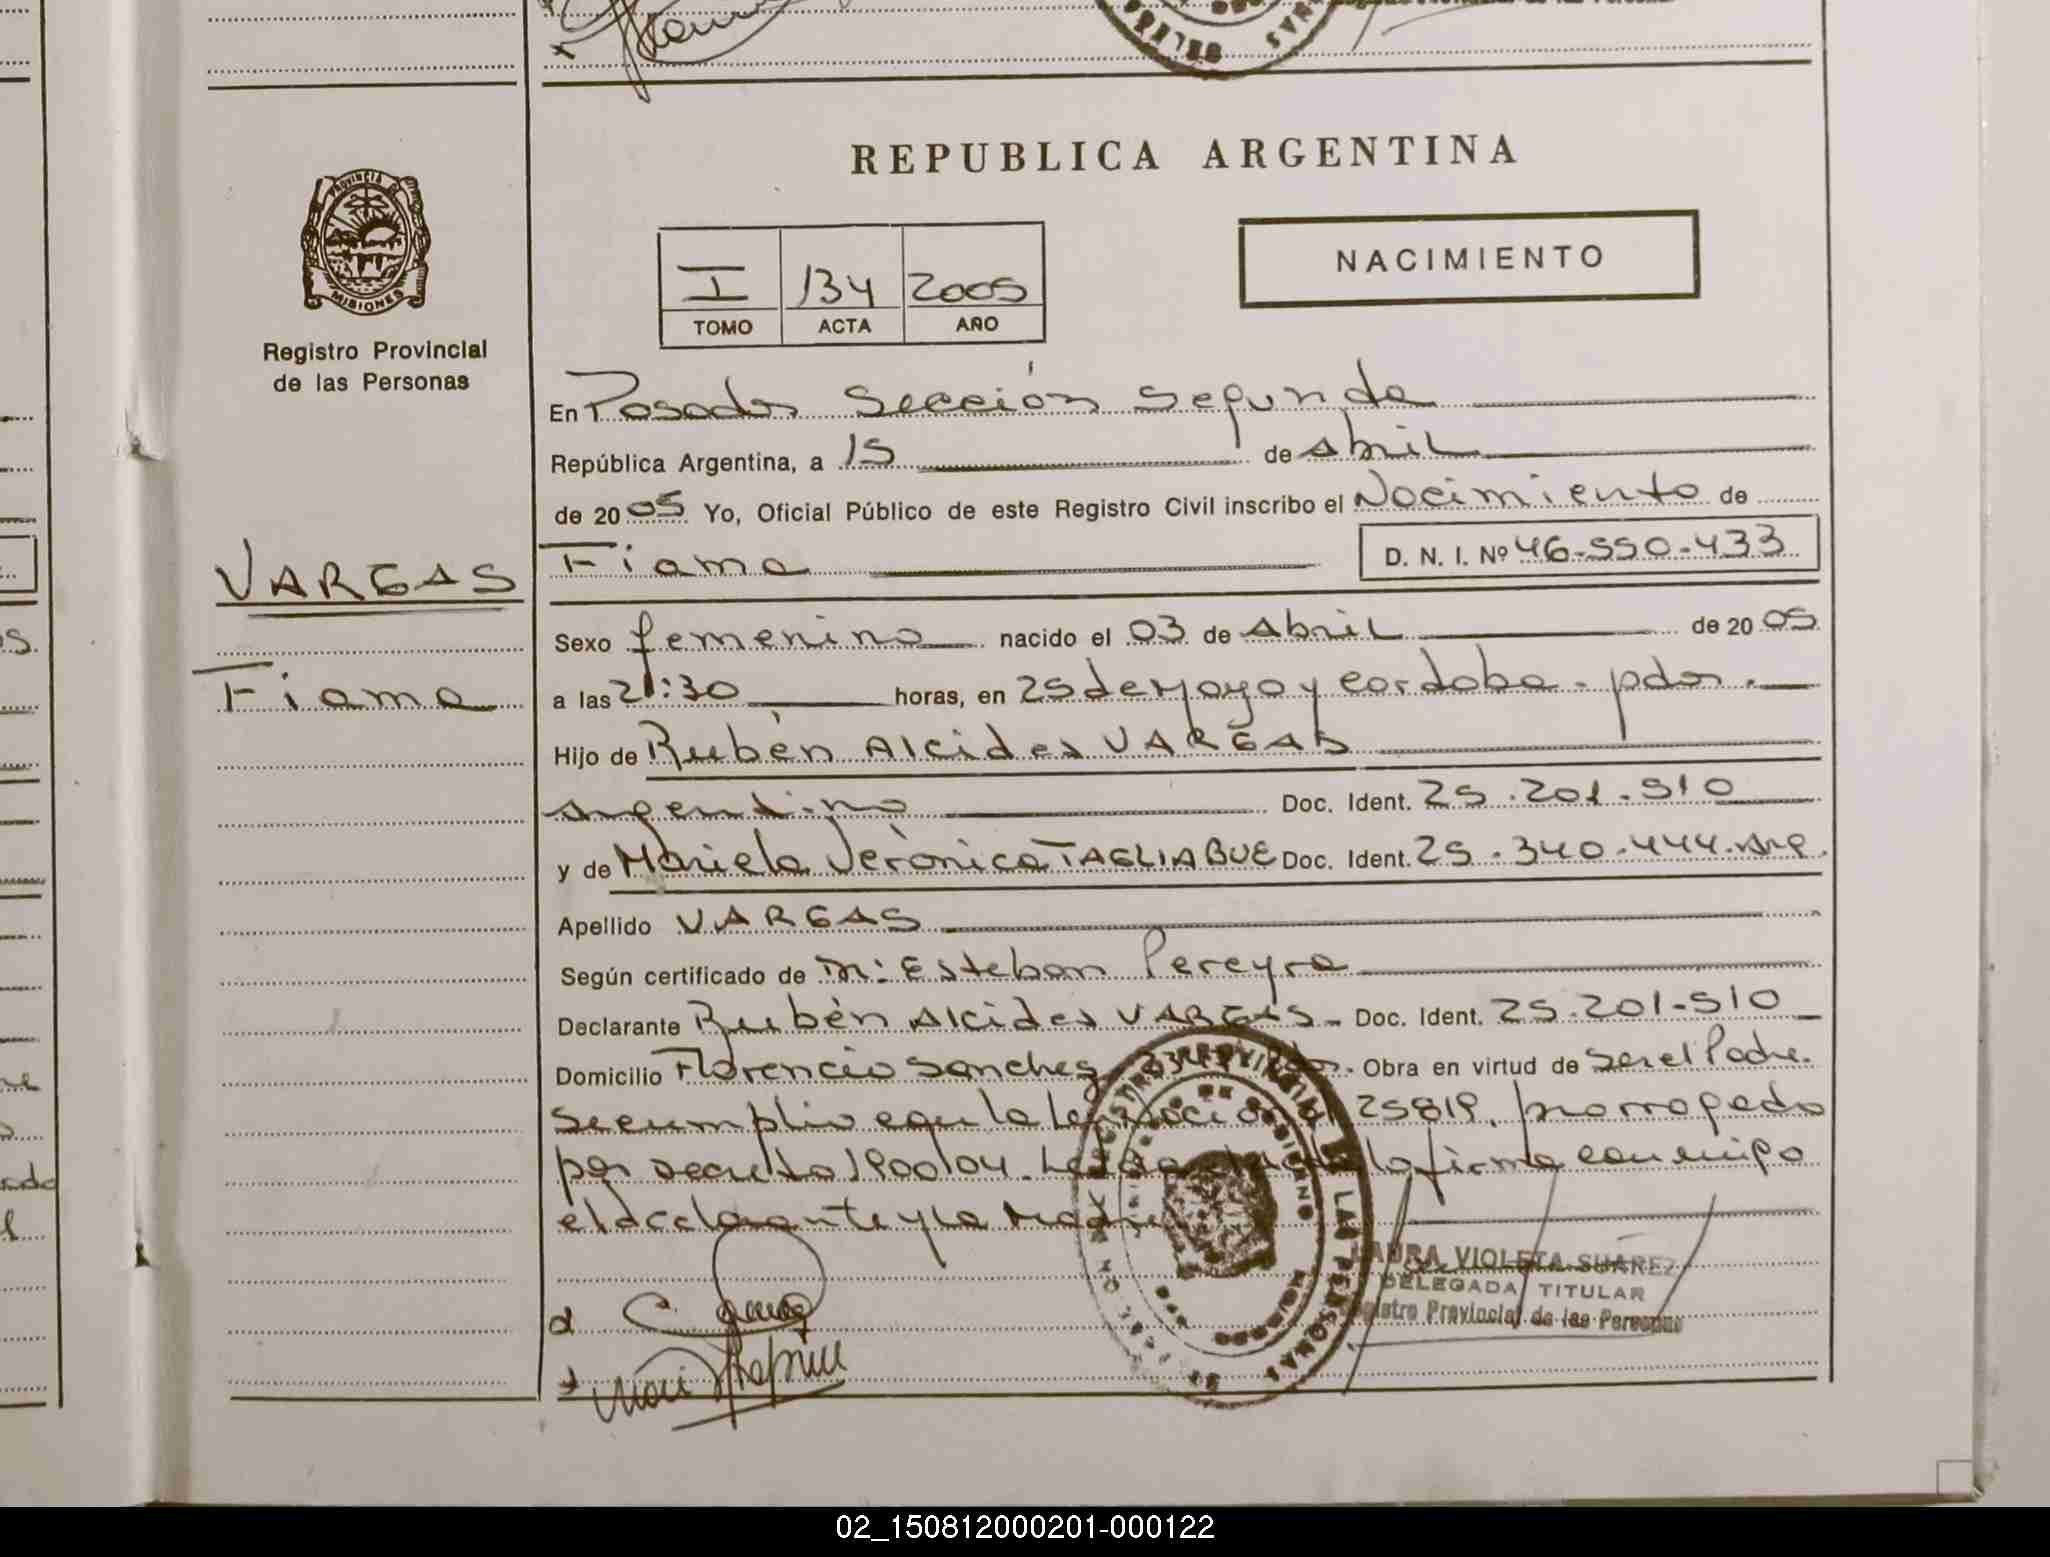 REPUBLICA ARGENTINA
PROVINCIA DE
MISIONES
Registro Provincial
de las Personas
NACIMIENTO
I 134 2005
TOMO ACTA AÑO
En Posadas Sección Segunda
República Argentina, a 15 de Abril
de 2005 Yo, Oficial Público de este Registro Civil inscribo el Nacimiento de
VARGAS
Fiama
Fiama D. N. I. Nº 46-550-433
Sexo femenino nacido el 03 de Abril de 2005
a las 21:30 horas, en 25 de Mayo y cordoba - pdas.
Hijo de Rubén Alcides VARGAS
Argentino Doc. Ident. 25.201.510
y de Mariela Verónica TAGLIABUE Doc. Ident. 25.340.444. Arg.
Apellido VARGAS
Según certificado de m: Esteban Pereyra
Declarante Rubén Alcides VARGAS - Doc. Ident. 25.201-510
Domicilio Florencio Sanchez Obra en virtud de ser el Padre.
Se cumplio con la Ley 25819. prorrogado
por decreto 1900/04. la firma conmigo
el declarante y la Madre
LAURA VIOLETA SUAREZ
DELEGADA TITULAR
Registro Provincial de las Personas
02_150812000201-000122